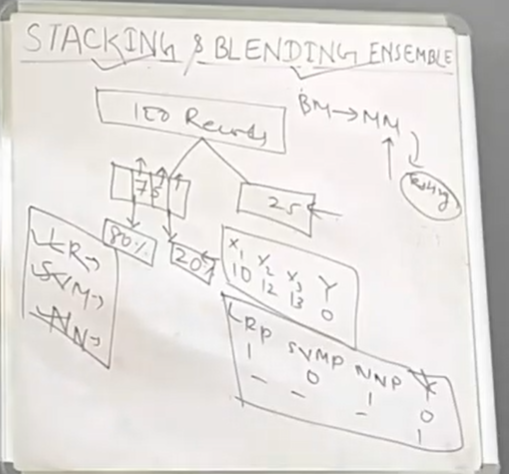 STACKING & BLENDING ENSEMBLE
100 Records
BM → MM
Testing
75
25
80%
20%
LR →
SVM →
NN →
X1 X2 X3 Y
10 12 13 0
LRP SVMP NNP Y
1 0 1 0
- - - 1